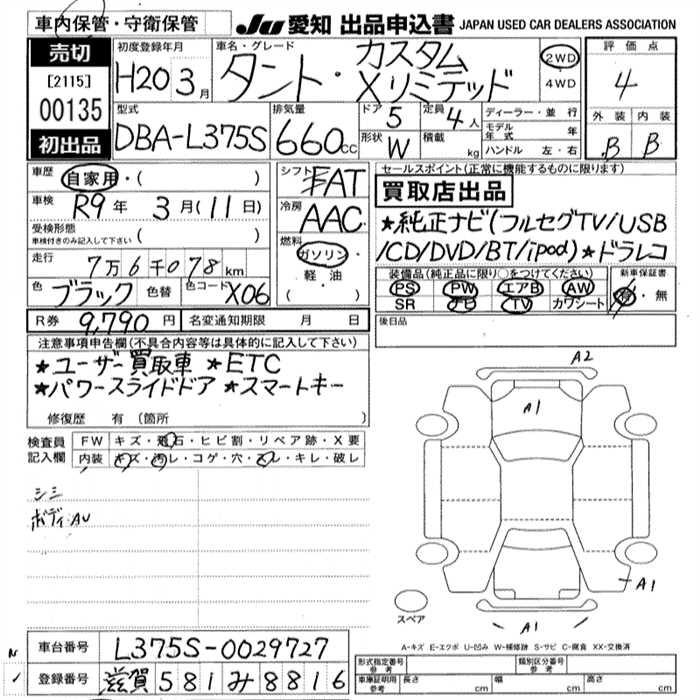 車内保管・守衛保管
JU 愛知 出品申込書 JAPAN USED CAR DEALERS ASSOCIATION
売切
[2115]
00135
初出品
初度登録年月
H20 3月
車名・グレード
タント・カスタム
Xリミテッド
2WD
4WD
評価点
4
型式
DBA-L375S
排気量
660cc
ドア 5
定員 4人
形状 W
積載 kg
ディーラー・並行
モデル年式 年
ハンドル 左・右
外装 内装
B B
車歴 自家用・( )
車検 R9年 3月(11日)
受検形態
車検付きのみ記入して下さい ( )
走行 7万6千078km
色 ブラック 色替 色コード X06
シフト FAT
冷房 AAC
燃料
ガソリン・
軽・油
( )
セールスポイント(正常に機能するものに限ります)
買取店出品
★純正ナビ(フルセグTV/USB
/CD/DVD/BT/iPod)★ドラレコ
装備品(純正品に限り○をつけてください)
PS PW エアB AW
SR ナビ TV カワシート
新車保証書
有・無
R券 9,790円 名変通知期限 月 日
後日品
注意事項申告欄(不具合内容等は具体的に記入して下さい)
★ユーザー買取車 ★ETC
★パワースライドドア ★スマートキー
修復歴 有(箇所 )
検査員
記入欄
FW キズ・飛石・ヒビ割・リペア跡・X要
内装 キズ・汚レ・コゲ・穴・スレ・キレ・破レ
シミ
ボディ・AU
A2
A1
A1
A1
スペア
A-キズ E-エクボ U-凹み W-補修跡 S-サビ C-腐食 XX-交換済
車台番号 L375S-0029727
登録番号 滋賀 581 み 8816
型式指定番号
参考
類別区分番号
参考
車庫証明用
参考
長さ cm 幅 cm 高さ cm